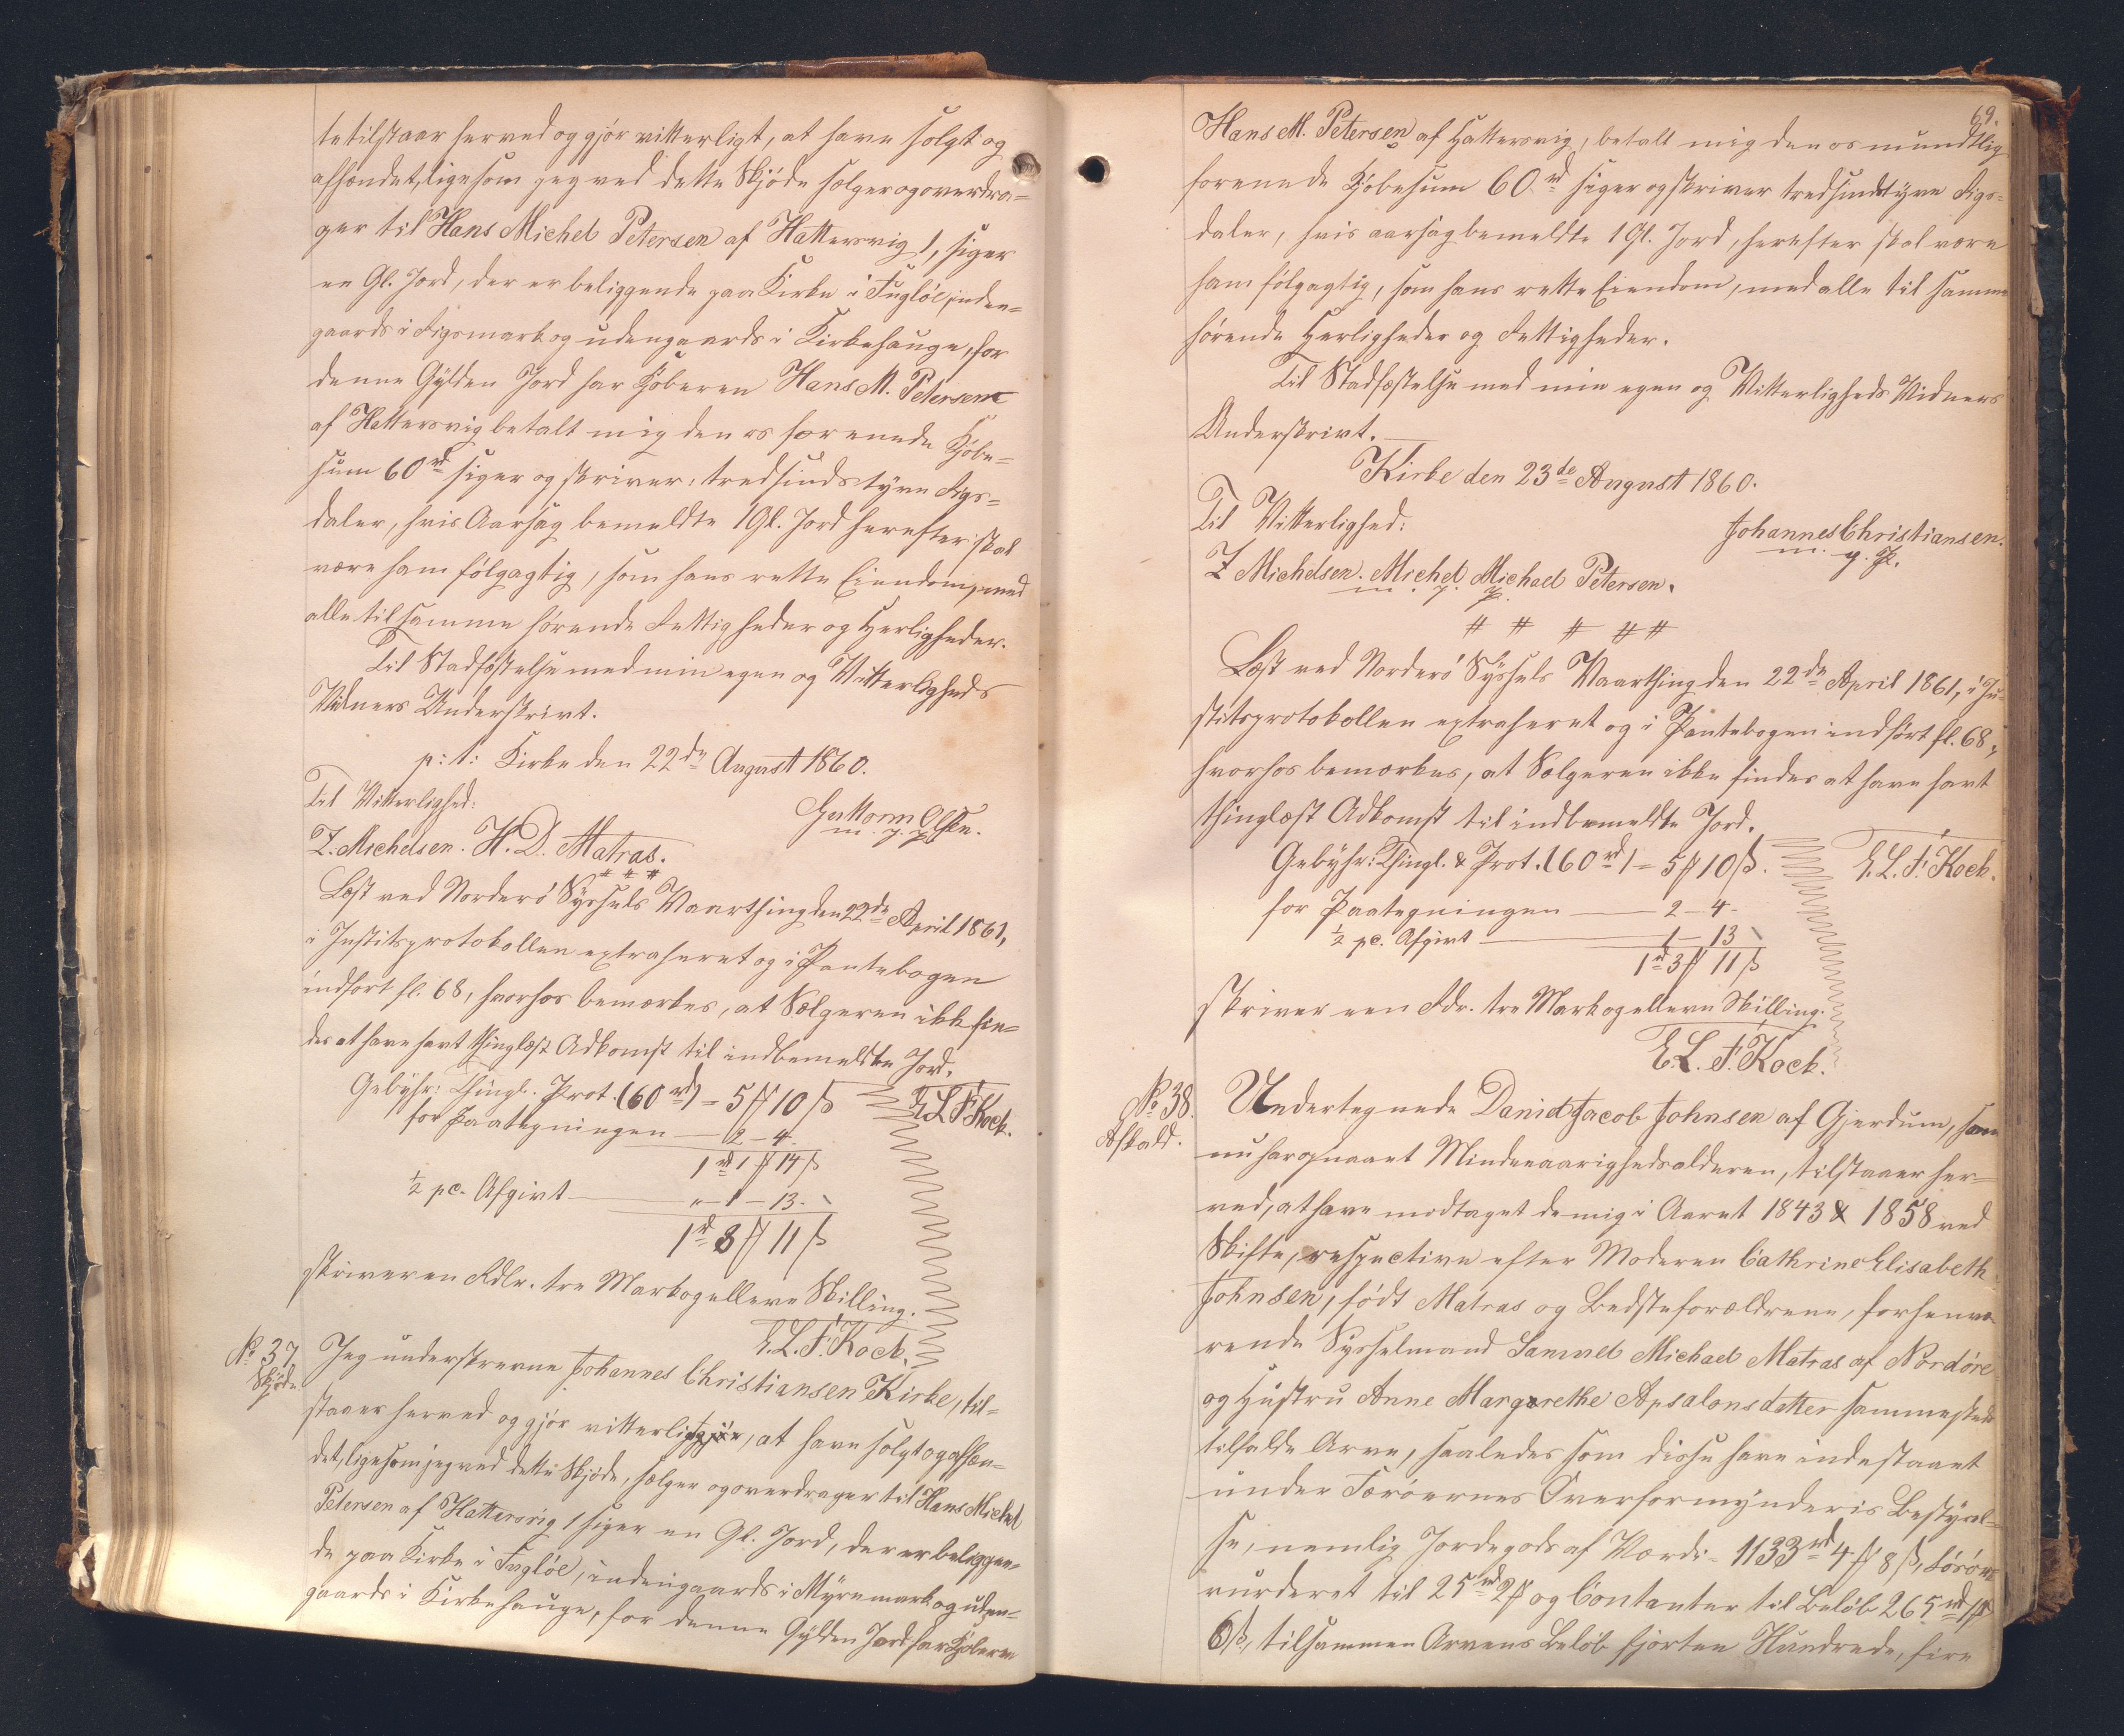 tetilstaar herved og gjør vitterligt, at have solgt og
afhændet, ligesom jeg ved dette Skjøde sælger og overdra=
ger til Hans Michel Petersen af Hattersvig 1, siger
en Gl. Jord, der er beliggende paa Kirke i Fugløe, inden=
gaards i Rigsmark og udengaards i Kirkehauge, for
denne Gylden Jord har Kjøberen Hans M. Petersen
af Hattersvig betalt mig den os forenede Kjøbe=
sum 60 rd siger og skriver: tredsindstyve Rigs=
daler, hvis Aarsag bemeldte 1 Gl. Jord herefter skal
være ham følgagtig, som hans rette Eiendom, med
alle til samme hørende Rettigheder og Herligheder.
Til Stadfæstelse med min egen og Vitterligheds
Vidners Underskrivt.
p: t: Kirke den 22de August 1860.
Til Vitterlighed:
Guttorm Olsen.
m. p. P.
Z. Michelsen. H. D. Matras.
# # #
Læst ved Norderø Syssels Vaarthing den 22de April 1861,
i Justitsprotokollen extraheret og i Pantebogen
indført fl. 68, hvorhos bemærkes, at Sælgeren ikke fin=
des at have havt thinglæst Adkomst til indbemeldte Jord.
Gebyhr: Thingl. Prot. (60 rd) = 5 ₰ 10 ß
E. L. F. Koch.
for Paategningen — 2 — 4.
1 rd 1 ₰ 14 ß
½ pc. Afgivt — " — 1 — 13.
1 rd 3 ₰ 11 ß
skriver en Rdlr. tre Mark og elleve Skilling.
E. L. F. Koch.
No 37
Skjøde
Jeg underskrevne Johannes Christiansen Kirke, til=
staaer herved og gjør vitterligt, at have solgt og afhæn=
det, ligesom jeg ved dette Skjøde, sælger og overdrager til Hans Michel
Petersen af Hattersvig 1 siger en Gl. Jord, der er beliggen=
de paa Kirke i Fugløe, indengaards i Myremark og uden=
gaards i Kirkehauge, for denne Gylden Jord har Kjøberen
69.
Hans M. Petersen af Hattersvig, betalt mig den os mundtlig
forenede Kjøbesum 60 rd siger og skriver tredsindstyve Rigs=
daler, hvis aarsag bemeldte 1 Gl. Jord, herefter skal være
ham følgagtig, som hans rette Eiendom, med alle til samme
hørende Herligheder og Rettigheder.
Til Stadfæstelse med min egen og Vitterligheds Vidners
Underskrivt.
Kirke den 23de August 1860.
Til Vitterlighed:
Johannes Christiansen.
m. p. P.
Z Michelsen. Michel Michael Petersen.
m. p. P.
# # # # #
Læst ved Norderø Syssels Vaarthing den 22de April 1861, i Ju=
stitsprotokollen extraheret og i Pantebogen indført fl. 68,
hvorhos bemærkes, at Sælgeren ikke findes at have havt
thinglæst Adkomst til indbemeldte Jord.
Gebyhr: Thingl. & Prot. (60 rd) = 5 ₰ 10 ß.
E. L. F. Koch.
for Paategningen — 2 — 4 —
½ pc. Afgivt — 1 — 13
1 rd 3 ₰ 11 ß
skriver een Rdr. tre Mark og elleve Skilling.
E. L. F. Koch.
No 38.
Afkald.
Undertegnede Daniel Jacob Johnsen af Gjerdum, som
nu har opnaaet Mindreaarighedsalderen, tilstaaer her=
ved, at have modtaget de mig i Aaret 1843 & 1858 ved
Skifte, respective efter Moderen Cathrine Elisabeth
Johnsen, født Matras og Bedsteforældrene, forhenvæ
rende Sysselmand Samuel Michael Matras af Nordøre
og Hustru Anne Margrethe Apsalonsdatter sammesteds
tilfaldne Arve, saaledes som disse have indestaaet
under Færøernes Overformynderis Bestyrel=
se, nemlig Jordegods af Værdi 1133 rd 4 ₰ 8 ß, Løsøre
vurderet til 25 rd 2 ₰ og Contanter til Beløb 265 rd 1 ₰
6 ß, tilsammen Arvens Beløb fjorten Hundrede, fire